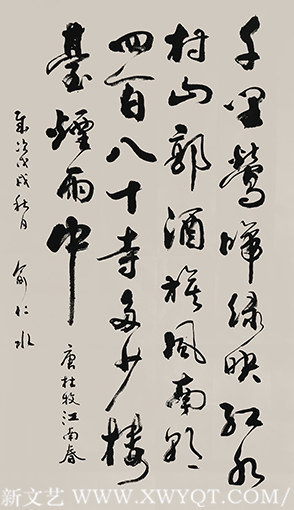 千里鶯啼绿映红水
村山郭酒旗風南朝
四百八十寺多少樓
臺煙雨中
唐杜牧江南春
歲次戊戌秋月 俞仁水
新文艺 WWW.XWYQT.COM